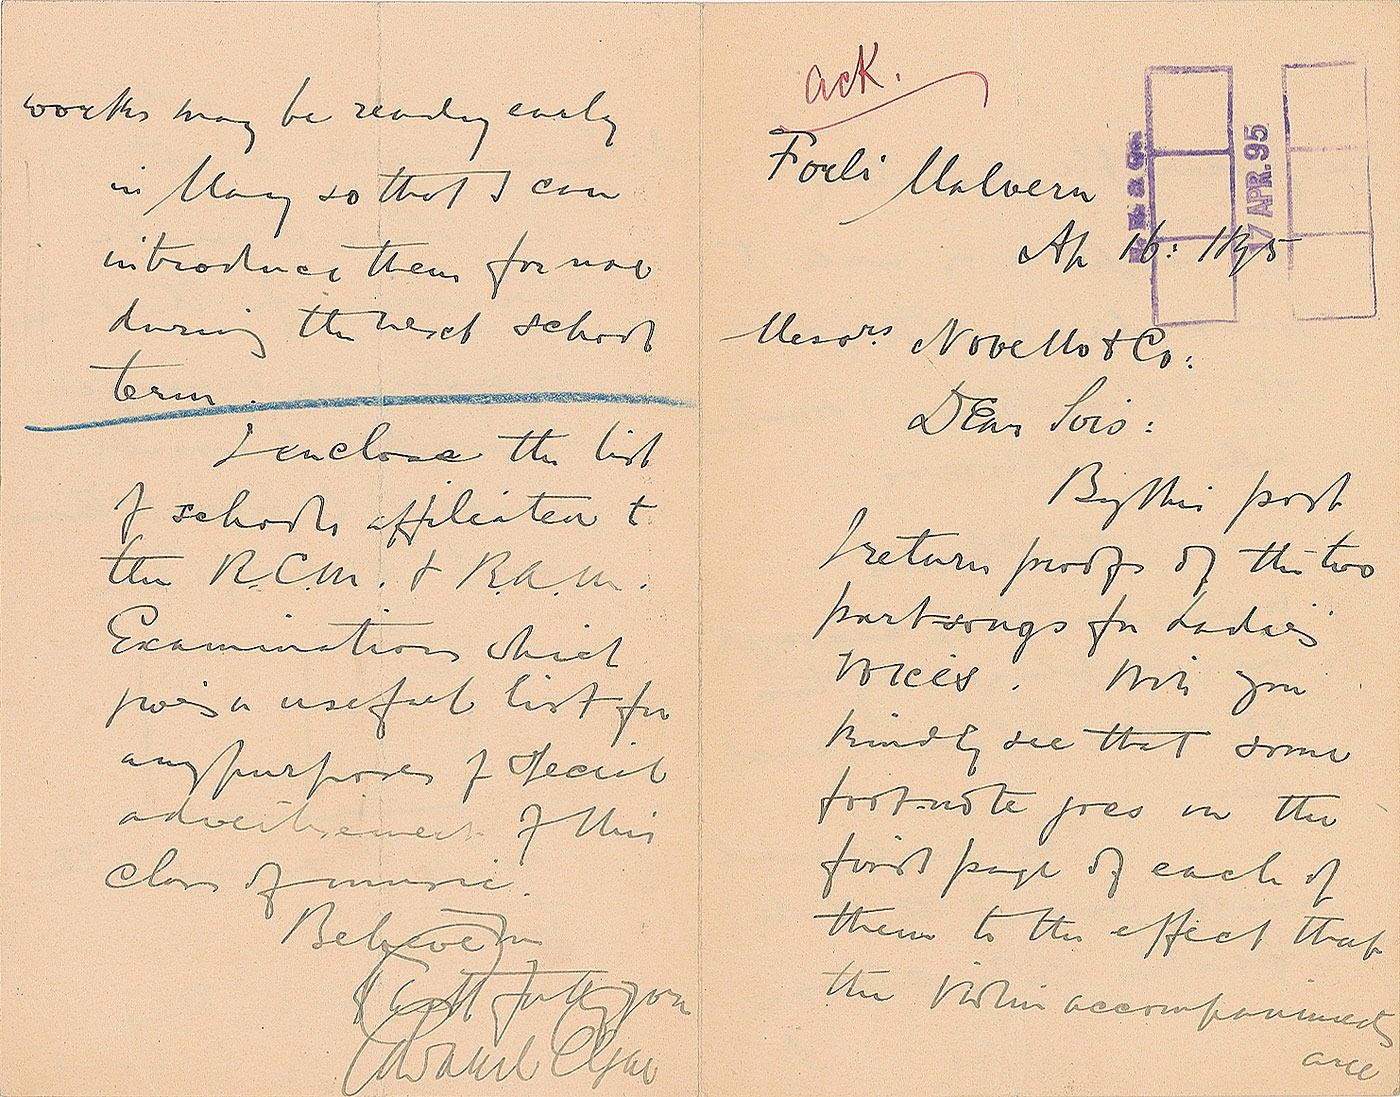 ack.
Forli Malvern
Ap 16: 1895
17 APR. 95
Messrs Novello & Co:
Dear Sirs:
By this post
I return proofs of the two
part-songs for Ladies'
voices. Will you
kindly see that some
foot-note goes on the
first page of each of
them to the effect that
the violin accompaniments
are
works may be ready early
in May so that I can
introduce them for use
during the next school
term.
I enclose the list
of schools affiliated to
the R.C.M. & R.A.M.
Examinations which
gives a useful list for
any purposes of special
advertisement of this
class of music.
Believe me
faithfully yours
Edward Elgar